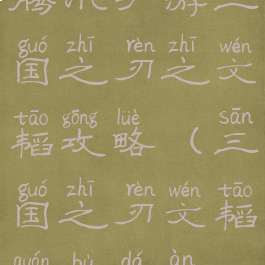 guó zhī rèn zhī wén
国之刃之文
tāo gōng lüè sān
韬攻略（三
guó zhī rèn wén tāo
国之刃文韬
quán bù dá àn